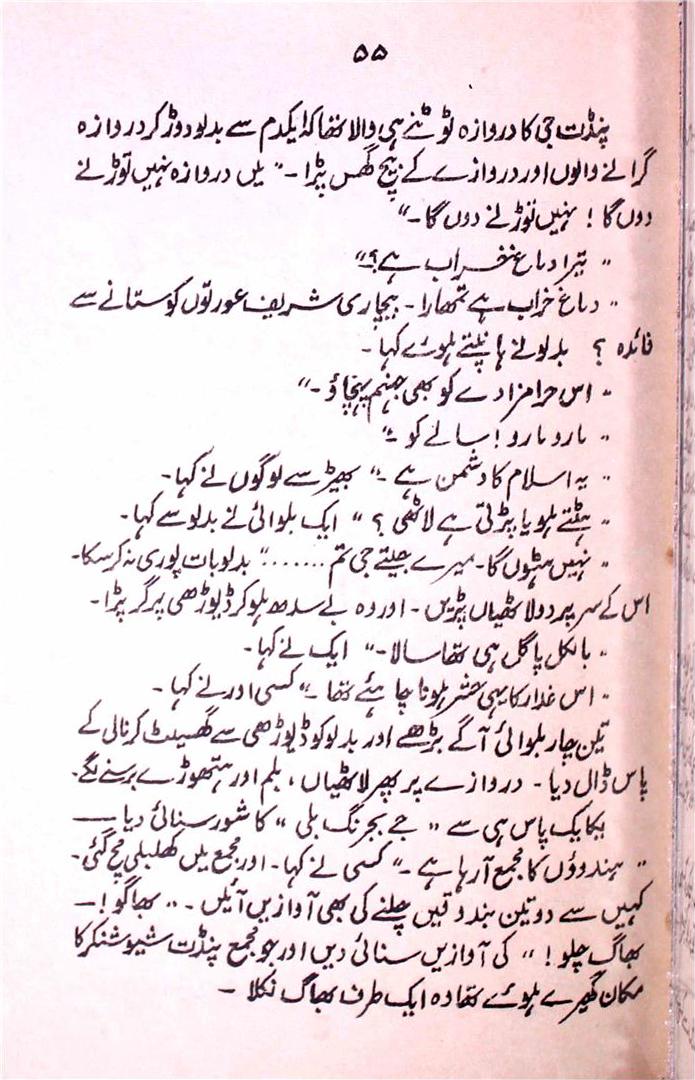 ۵۵
پنڈت جی کا دروازہ ٹوٹنے ہی والا تھا کہ ایکدم سے بدلو دوڑ کر دروازہ
گرانے والوں اور دروازے کے بیچ گھس پڑا۔ ”میں دروازہ نہیں توڑنے
دوں گا! نہیں توڑنے دوں گا۔“
”تیرا دماغ خراب ہے؟“
”دماغ خراب ہے تمھارا۔ بیچاری شریف عورتوں کو ستانے سے
فائدہ؟ بدلو نے ہانپتے ہوئے کہا۔
”اس حرامزادے کو بھی جہنم پہنچاؤ۔“
”مارو مارو! سالے کو۔“
”یہ اسلام کا دشمن ہے۔“ بھیڑ سے لوگوں نے کہا۔
”ہٹتے ہو یا پڑتی ہے لاٹھی؟“ ایک بلوائی نے بدلو سے کہا۔
”نہیں ہٹوں گا۔ میرے جیتے جی تم .......“ بدلو بات پوری نہ کر سکا۔
اس کے سر پر دو لاٹھیاں پڑیں۔ اور وہ بے سدھ ہو کر ڈیوڑھی پر گر پڑا۔
”بالکل پاگل ہی تھا سالا۔“ ایک نے کہا۔
”اس غدار کا یہی حشر ہونا چاہئے تھا۔“ کسی اور نے کہا۔
تین چار بلوائی آگے بڑھے اور بدلو کو ڈیوڑھی سے گھسیٹ کر نالی کے
پاس ڈال دیا۔ دروازے پر پھر لاٹھیاں، بلم اور ہتھوڑے برسنے لگے۔
یکایک پاس ہی سے ”جے بجرنگ بلی“ کا شور سنائی دیا ——
”ہندوؤں کا مجمع آ رہا ہے۔“ کسی نے کہا۔ اور مجمع میں کھلبلی مچ گئی۔
کہیں سے دو تین بندوقیں چلنے کی بھی آوازیں آئیں۔ ”بھاگو! —
بھاگ چلو!“ کی آوازیں سنائی دیں اور جو مجمع پنڈت شیو شنکر کا
مکان گھیرے ہوئے تھا وہ ایک طرف بھاگ نکلا۔